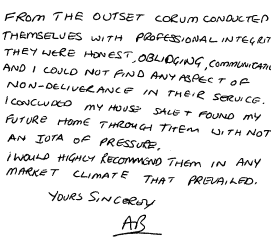 FROM THE OUTSET CORUM CONDUCTED
THEMSELVES WITH PROFESSIONAL INTEGRIT
THEY WERE HONEST, OBLIDGING, COMMUNICATI
AND I COULD NOT FIND ANY ASPECT OF
NON-DELIVERANCE IN THEIR SERVICE.
I CONCLUDED MY HOUSE SALE & FOUND MY
FUTURE HOME THROUGH THEM WITH NOT
AN IOTA OF PRESSURE.
I WOULD HIGHLY RECOMMEND THEM IN ANY
MARKET CLIMATE THAT PREVAILED.
YOURS SINCERELY
AB